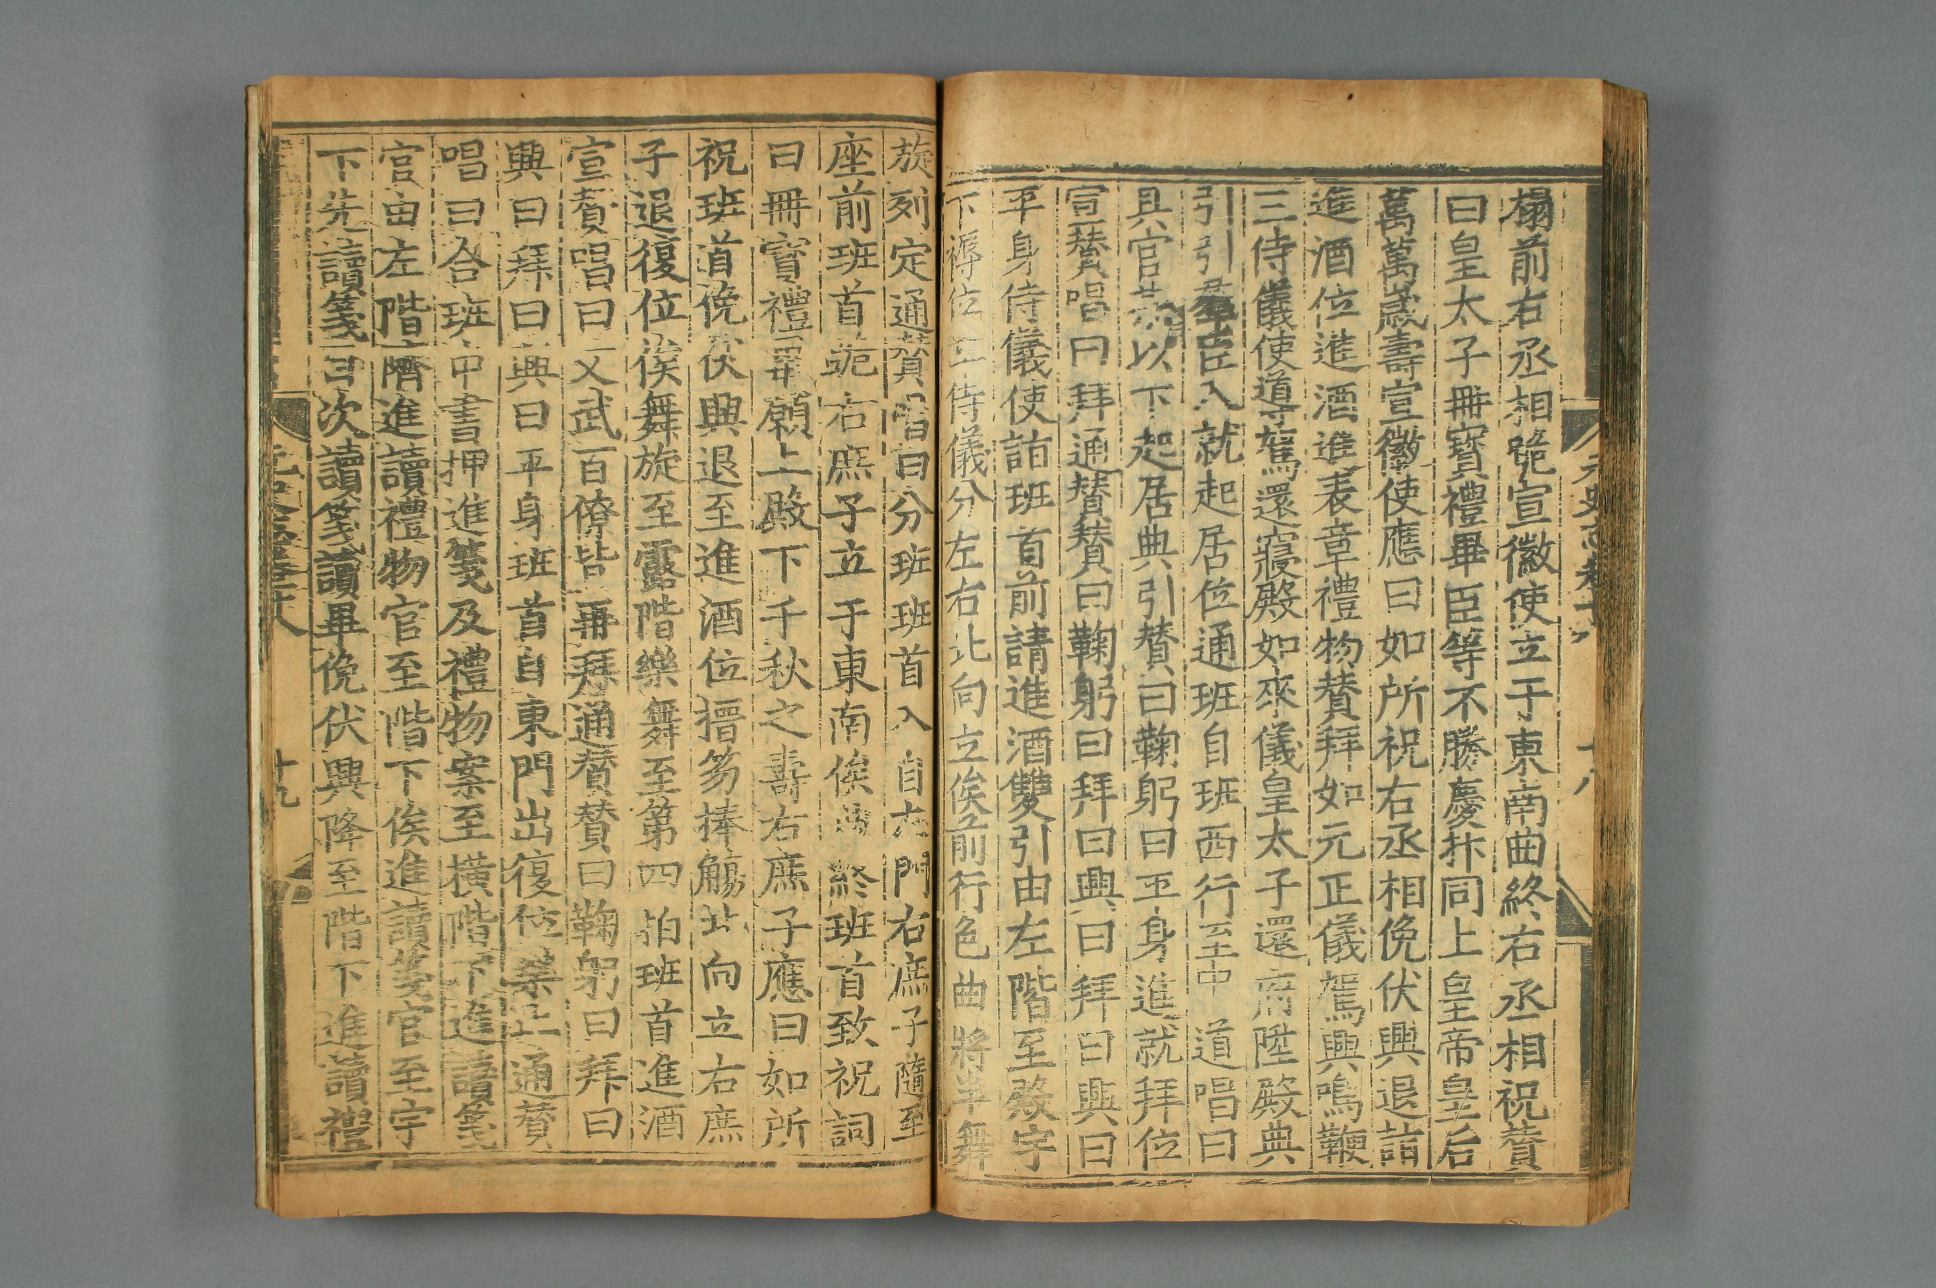 榻前右丞相跪宣徽使立于東南曲終右丞相祝贊
曰皇太子冊寶禮畢臣等不勝慶抃同上皇帝皇后
萬萬歲壽宣徽使應曰如所祝右丞相俛伏興退詣
進酒位進酒進表章禮物贊拜如元正儀駕興鳴鞭
三侍儀使導駕還寢殿如來儀皇太子還府陞殿典
引引羣臣入就起居位通班自班西行至中道唱曰
具官以下起居典引贊曰鞠躬曰平身進就拜位
宣贊唱曰拜通贊贊曰鞠躬曰拜曰興曰拜曰興曰
平身侍儀使詣班首前請進酒雙引由左階至殿宇
下褥位立侍儀分左右北向立俟前行色曲將半舞
旋列定通贊唱曰分班班首入自左門右庶子隨至
座前班首跪右庶子立于東南俟曲終班首致祝詞
曰冊寶禮畢願上殿下千秋之壽右庶子應曰如所
祝班首俛伏興退至進酒位搢笏捧觴北向立右庶
子退復位俟舞旋至露階樂舞至第四拍班首進酒
宣贊唱曰文武百僚皆再拜通贊贊曰鞠躬曰拜曰
興曰拜曰興曰平身班首自東門出復位樂止通贊
唱曰合班中書押進箋及禮物案至橫階下進讀箋
官由左階隮進讀禮物官至階下俟進讀箋官至宇
下先讀箋目次讀箋讀畢俛伏興降至階下進讀禮
十九